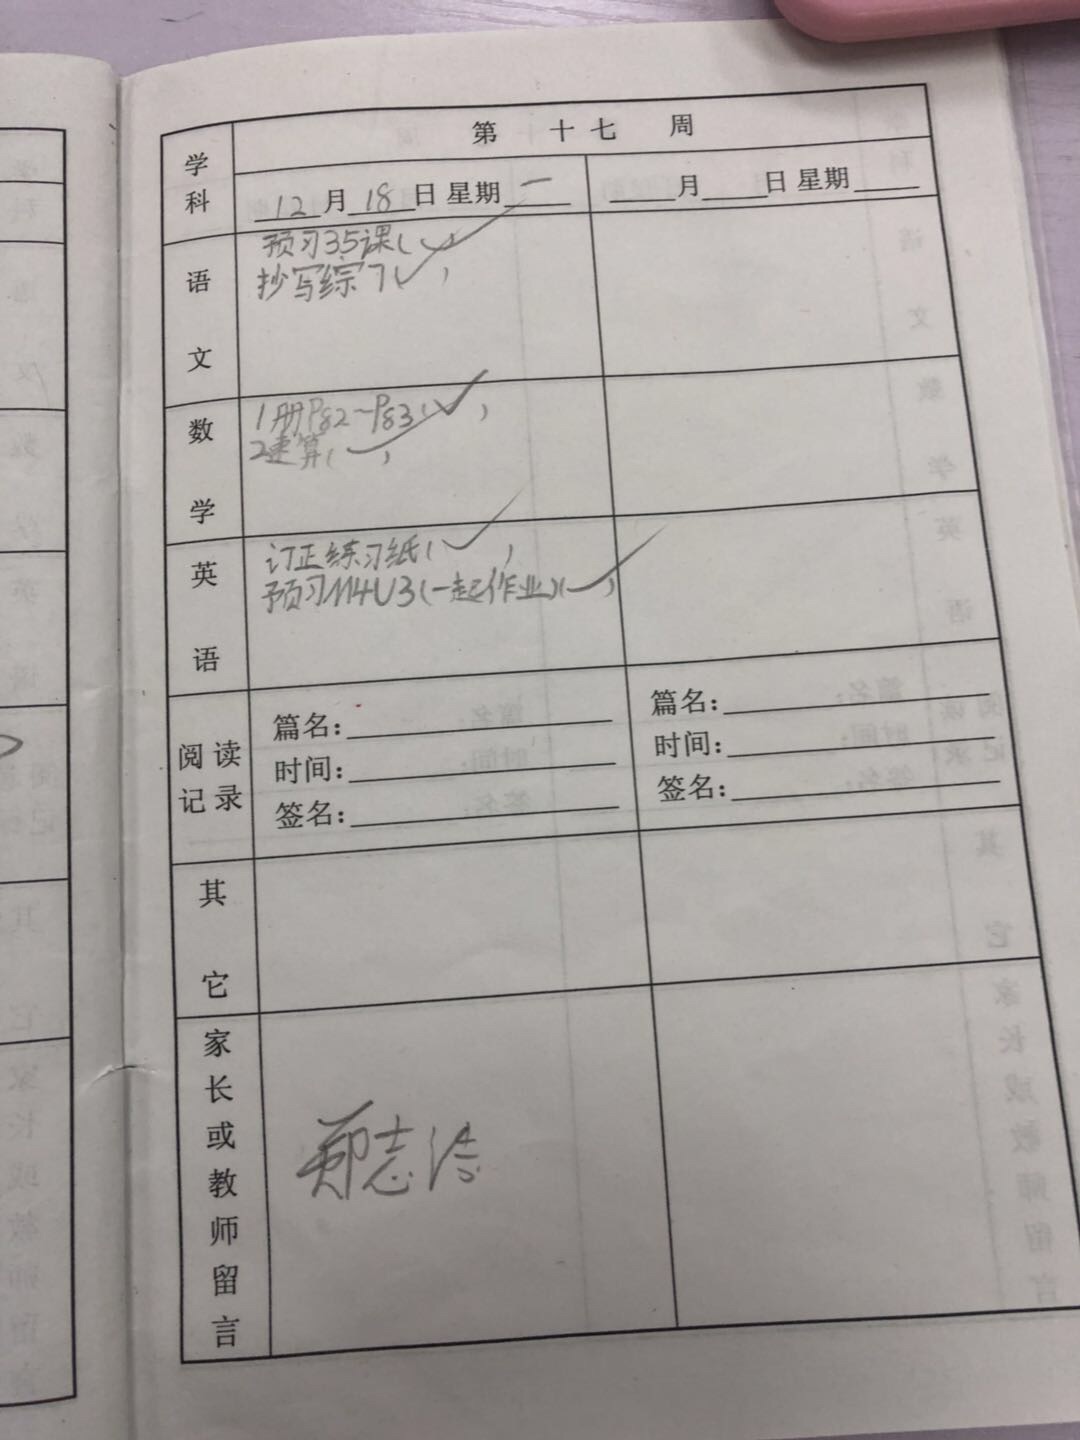 第 十七 周
学科
12月18日 星期一
月 日 星期
语文
预习35课(✓)
抄写综7(✓)
数学
1册P82~P83(✓)
2速算(✓)
英语
订正练习纸(✓)
预习M4U3(一起作业)(✓)
阅读记录
篇名:
时间:
签名:
篇名:
时间:
签名:
其它
家长或教师留言
郑志浩